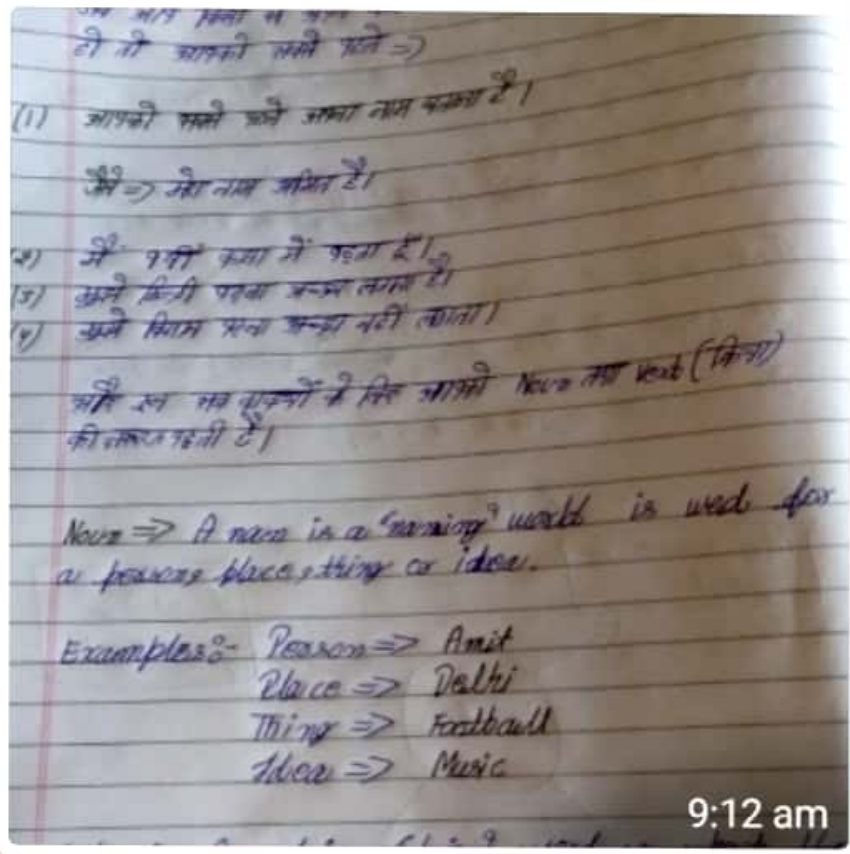 हो तो आपको सबसे पहले =>
(1) आपको सबसे पहले अपना नाम बताना है।
जैसे => मेरा नाम अमित है।
(2) मैं 9वीं कक्षा में पढ़ता हूँ।
(3) मुझे हिन्दी पढ़ना अच्छा लगता है।
(4) मुझे विज्ञान पढ़ना अच्छा नहीं लगता।
और इन सब वाक्यों के लिए आपको Noun तथा verb (क्रिया)
की जरूरत पड़ती है।
Noun => A noun is a "naming" world is used for
a person, place, thing or idea.
Examples:- Person => Amit
Place => Delhi
Thing => Football
Idea => Music
9:12 am